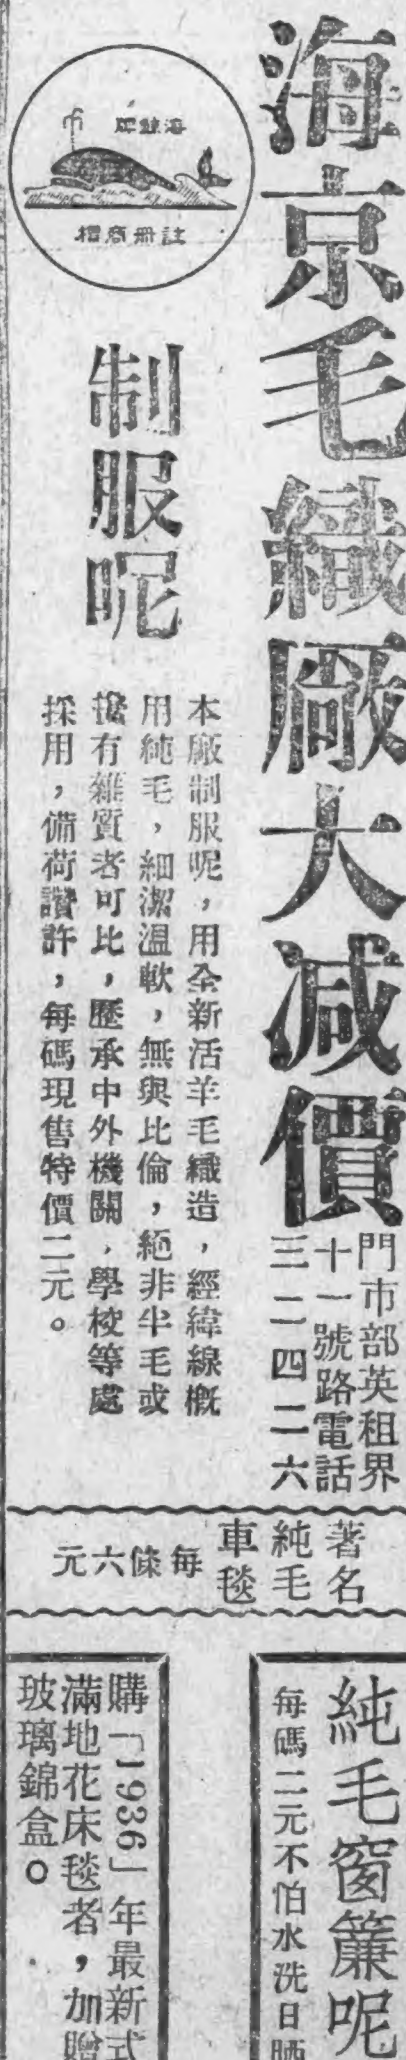 海京毛織廠大減價
門市部英租界
十一號路電話
三二四二六
海鯨牌
註册商標
制服呢
本廠制服呢，用全新活羊毛織造，經緯線概
用純毛，細潔溫軟，無與比倫，絕非半毛或
攙有雜質者可比，歷承中外機關，學校等處
採用，備荷讚許，每碼現售特價二元。
著名
純毛
車毯
每條六元
純毛窗簾呢
每碼二元不怕水洗日晒
購「1936」年最新式
滿地花床毯者，加贈
玻璃錦盒。